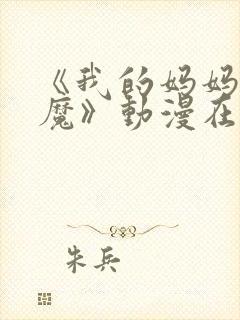 《我的妈妈
魔》動漫在
朱兵